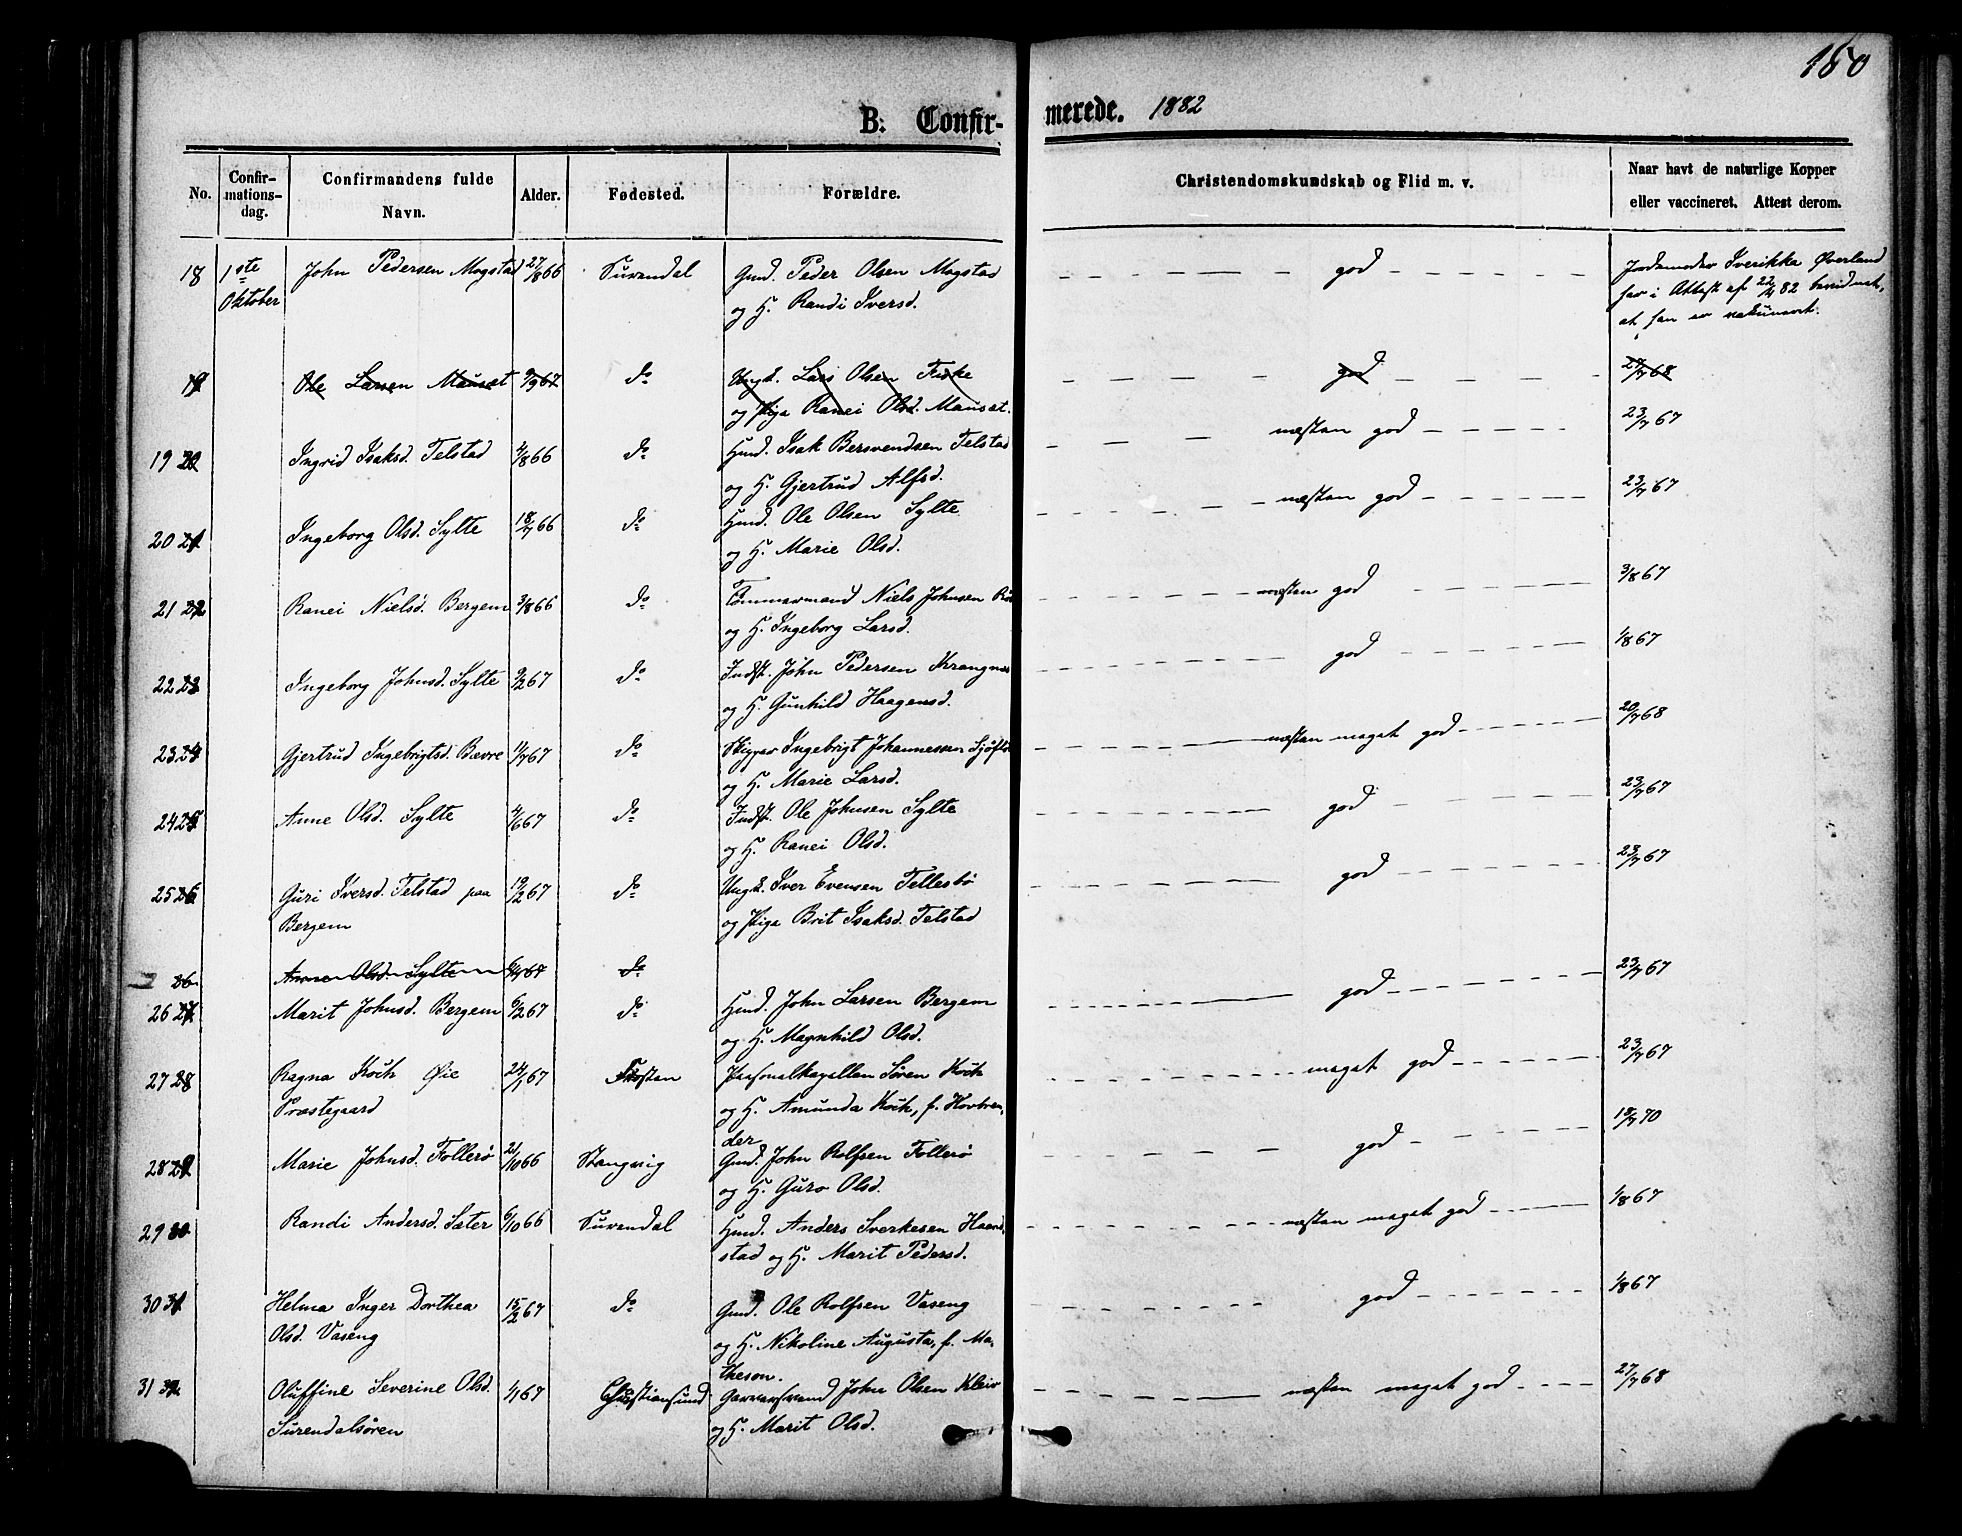 160
B. Confir- merede. 1882
No. Confir-mations-dag. Confirmandens fulde Navn. Alder. Fødested. Forældre. Christendomskundskab og Flid m. v. Naar havt de naturlige Kopper eller vaccineret. Attest derom.
18 1ste John Pedersen Mogstad 27/8 66 Surendal Gmd. Peder Olsen Mogstad god Jordemoder Sverikka Øverland
Oktober og H. Randi Iversd. har i Attest af 22/4 82 bevidnet,
at han er vakcineret.
19 Ole Larsen Mausæt 9/9 67 do Ungk. Lars Olsen Fiske god 27/7 68
og Pige Ranei Olsd. Mausæt.
19 20 Ingrid Isaksd. Telstad 4/8 66 do Hmd. Isak Bersvendsen Telstad næsten god 23/7 67
og H. Gjertrud Alfsd.
20 21 Ingeborg Olsd. Sylte 18/7 66 do Hmd. Ole Olsen Sylte næsten god 23/7 67
og H. Marie Olsd.
21 22 Ranei Nielsd. Bergem 3/8 66 do Tømmermand Niels Johnsen næsten god 3/8 67
og H. Ingeborg Larsd.
22 23 Ingeborg Johnsd. Sylte 9/2 67 do Indst. John Pedersen Krangnes god 1/8 67
og H. Gunhild Haagensd.
23 24 Gjertrud Ingebrigtsd. Bævre 11/7 67 do Skipper Ingebrigt Johannessen næsten meget god 20/7 68
og H. Marie Larsd.
24 25 Anne Olsd. Sylte 4/6 67 do Indst. Ole Johnsen Sylte god 23/7 67
og H. Ranei Olsd.
25 26 Guri Iversd. Telstad paa 19/2 67 do Ungk. Iver Evensen Tellesbø god 23/7 67
Bergem og Pige Brit Isaksd. Telstad
26 Anne Olsd. Sylte do
26 27 Marit Johnsd. Bergem 6/2 67 do Hmd. John Larsen Bergem god 23/7 67
og H. Magnhild Olsd.
27 28 Ragna Koch Øie 24/1 67 Frosten Personalkapellan Søren Koch meget god 23/7 67
Præstegaard og H. Amunda Koch, f. Hovbren-
der
28 29 Marie Johnsd. Follerø 21/10 66 Stangvig Gmd. John Rolfsen Follerø god 18/7 70
og H. Guro Olsd.
29 30 Randi Andersd. Sæter 6/10 66 Surendal Hmd. Anders Sverkesen Haand- næsten meget god 1/8 67
stad og H. Marit Pedersd.
30 31 Helma Inger Dorthea 15/2 67 do Gmd. Ole Rolfsen Vaseng god 1/8 67
Olsd. Vaseng og H. Nikoline Augusta, f. Ma-
theson.
31 32 Oluffine Severine Olsd. 1/1 67 Christiansund Garversvend John Olsen Kleiv næsten meget god 27/7 68
Surendalsøren og H. Marit Olsd.